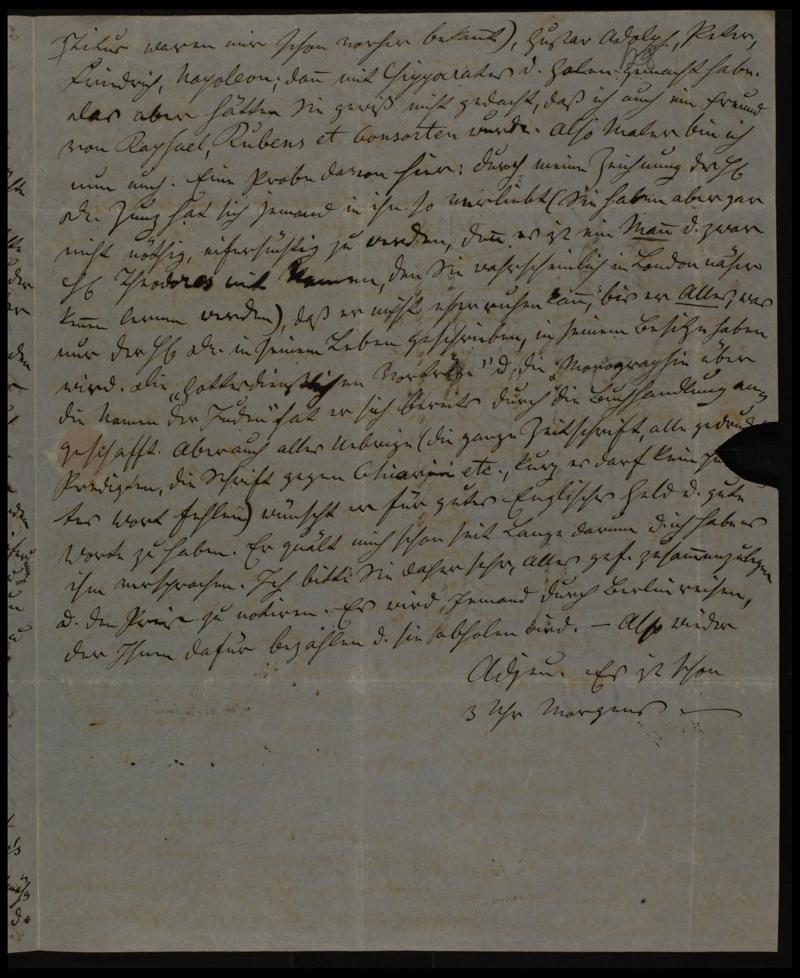 Titus waren mir schon vorher bekannt), Gustav Adolph, Peter,
Friedrich, Napoleon; dann mit Hippocrates u. Galen gemacht habe.
das aber hätten Sie gewiß nicht gedacht, daß ich auch ein Freund
von Raphael, Rubens et Consorten wurde. Also Maler bin ich
nun auch. Eine Probe davon hier: durch meine Zeichnung des H
Dr. Zunz hat sich Jemand in ihn so verliebt (Sie haben aber gar
nicht nöthig, eifersüchtig zu werden, denn es ist ein Mann u. zwar
H Theodores mit Namen, den Sie wahrscheinlich in London näher
kennen lernen werden), daß er nicht eher ruhen kann, bis er Alles, was
nur der H Dr. in seinem Leben geschrieben, in seinem Besitze haben
wird. Die „Gottesdienstlichen Vorträge" u. die „Monographie über
die Namen der Juden" hat er sich bereits durch die Buchhandlung ang
geschafft. Aber auch alles Uebrige (die ganze Zeitschrift, alle gedruck
Predigten, die Schrift gegen Chiarini etc., kurz es darf kein
tes Wort fehlen) wünscht er für gutes Englisches Geld u. gute
Worte zu haben. Er quält mich schon seit Lange darum u. ich habe es
ihm versprochen. Ich bitte Sie daher sehr, Alles gef. zusammenzulegen
u. den Preis zu notiren. Es wird Jemand durch Berlin reisen,
der Ihnen dafür bezahlen u. sie abholen wird. — Also wieder
Adjeu. Es ist schon
3 Uhr Morgens —